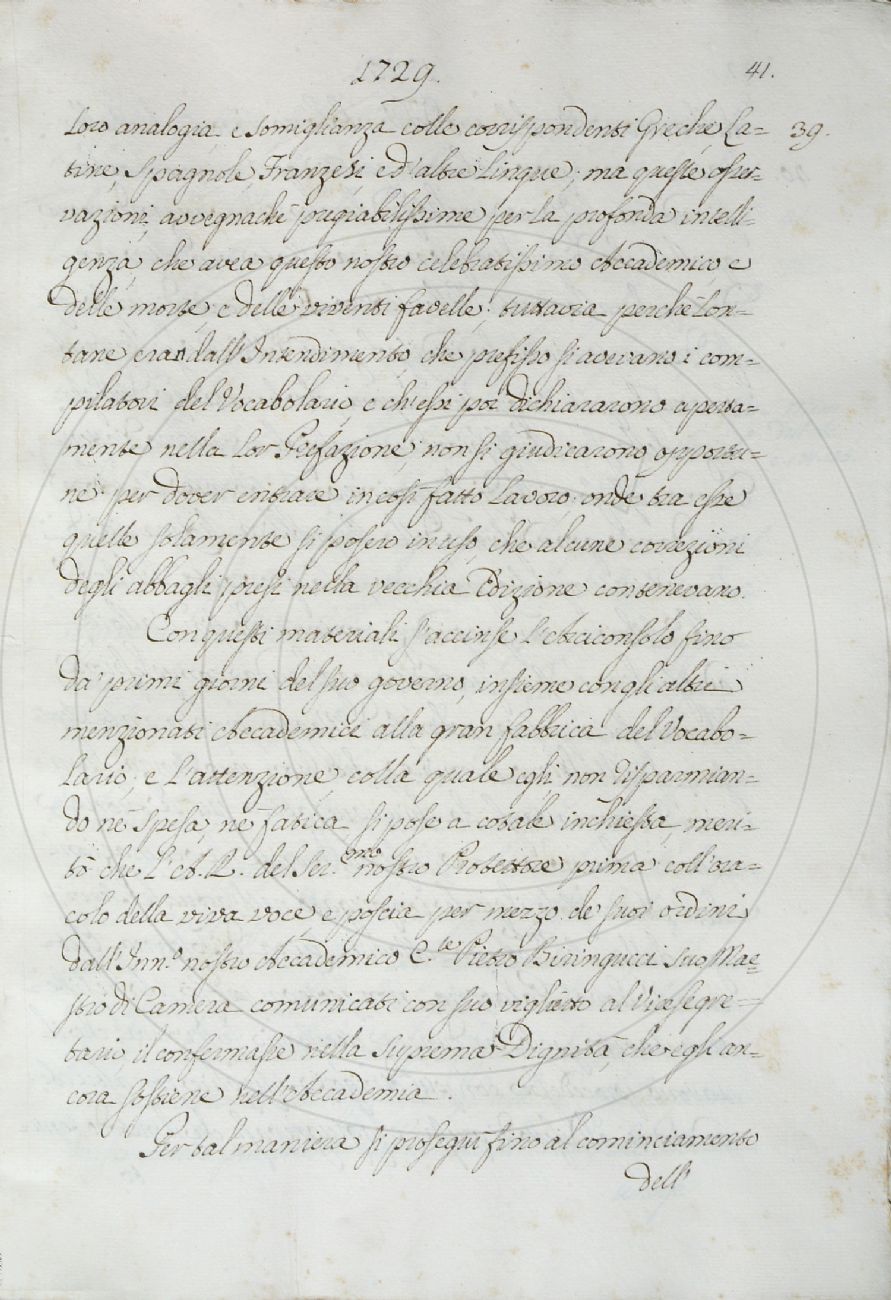 1729.
41.
39.
loro analogia, e somiglianza colle corrispondenti Greche, La=
tine, Spagnole, Franzesi, e d'altre Lingue; ma queste osser-
vazioni, avvegnachè pregiabilissime per la profonda intelli-
genza, che avea questo nostro celebratissimo Accademico, e
delle morte, e delle viventi favelle; tuttavia perchè lon-
tane eran dall'Intendimento, che prefisso si avevano i com-
pilatori del Vocabolario, e ch'essi poi dichiararono aperta-
mente nella lor Prefazione; non si giudicarono opportu-
ne per dover entrare in così fatto Lavoro: onde tra esse
quelle solamente si posero in uso, che alcune correzioni
degli abbagli presi nella vecchia Edizione contenevano.
Con questi materiali s'accinse l'Arciconsolo fino
da' primi giorni del suo governo, insieme con gli altri
menzionati Accademici alla gran fabbrica del Vocabo-
lario; e l'attenzione, colla quale egli non risparmian-
do nè spesa, nè fatica si pose a cotale inchiesta, meri-
tò che l'A. R. del Ser.mo nostro Protettore prima coll'ora-
colo della viva voce, e poscia per mezzo de' suoi ordini
dall'Inn.o nostro Accademico C.te Pietro Biringucci suo Mae-
stro di Camera comunicati con suo viglietto al Vicesegre=
tario, il confermasse nella suprema Dignità, che egli an-
cora sostiene nell'Accademia.
Per tal maniera si proseguì fino al cominciamento
dell'